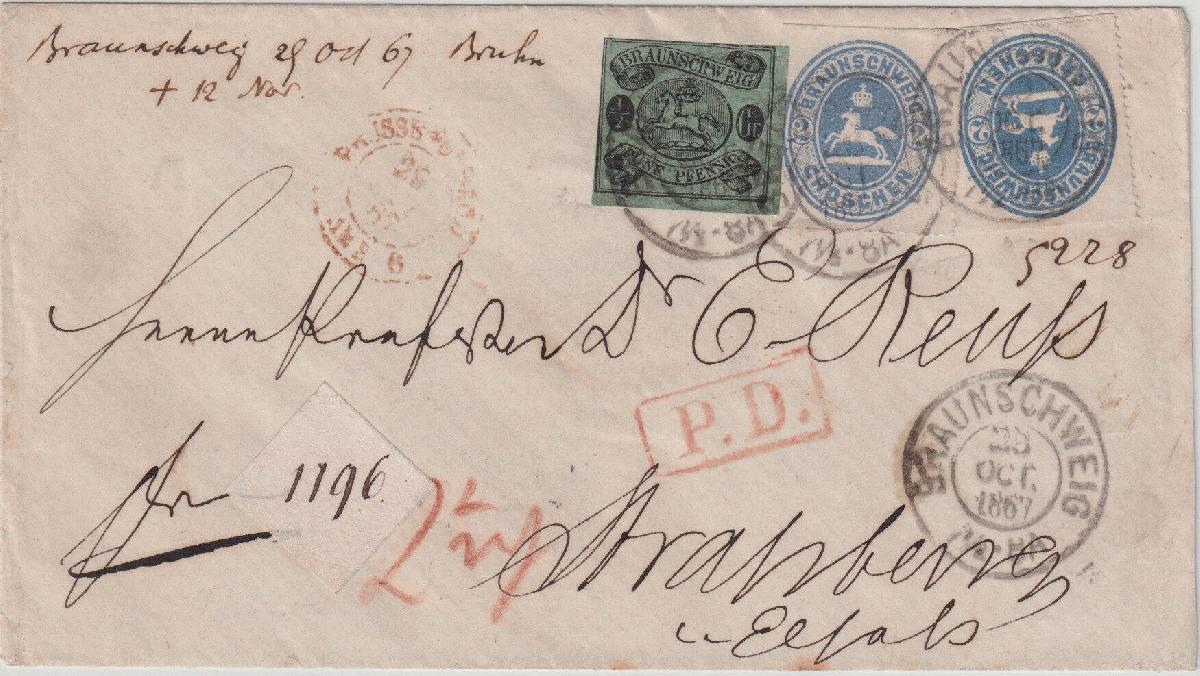 Braunschweig 29 Oct 67 Bruhn
+ 12 Nov.
BRAUNSCHWEIG
FÜNF PFENNIGE
BRAUNSCHWEIG
2 2
GROSCHEN
BRAUNSCHWEIG
2 2
GROSCHEN
BRAUN
5228
Herrn Professor Dr E. Reuß
P.D.
BRAUNSCHWEIG
23
OCT.
1867
fr
1196.
Straßburg
Elsass